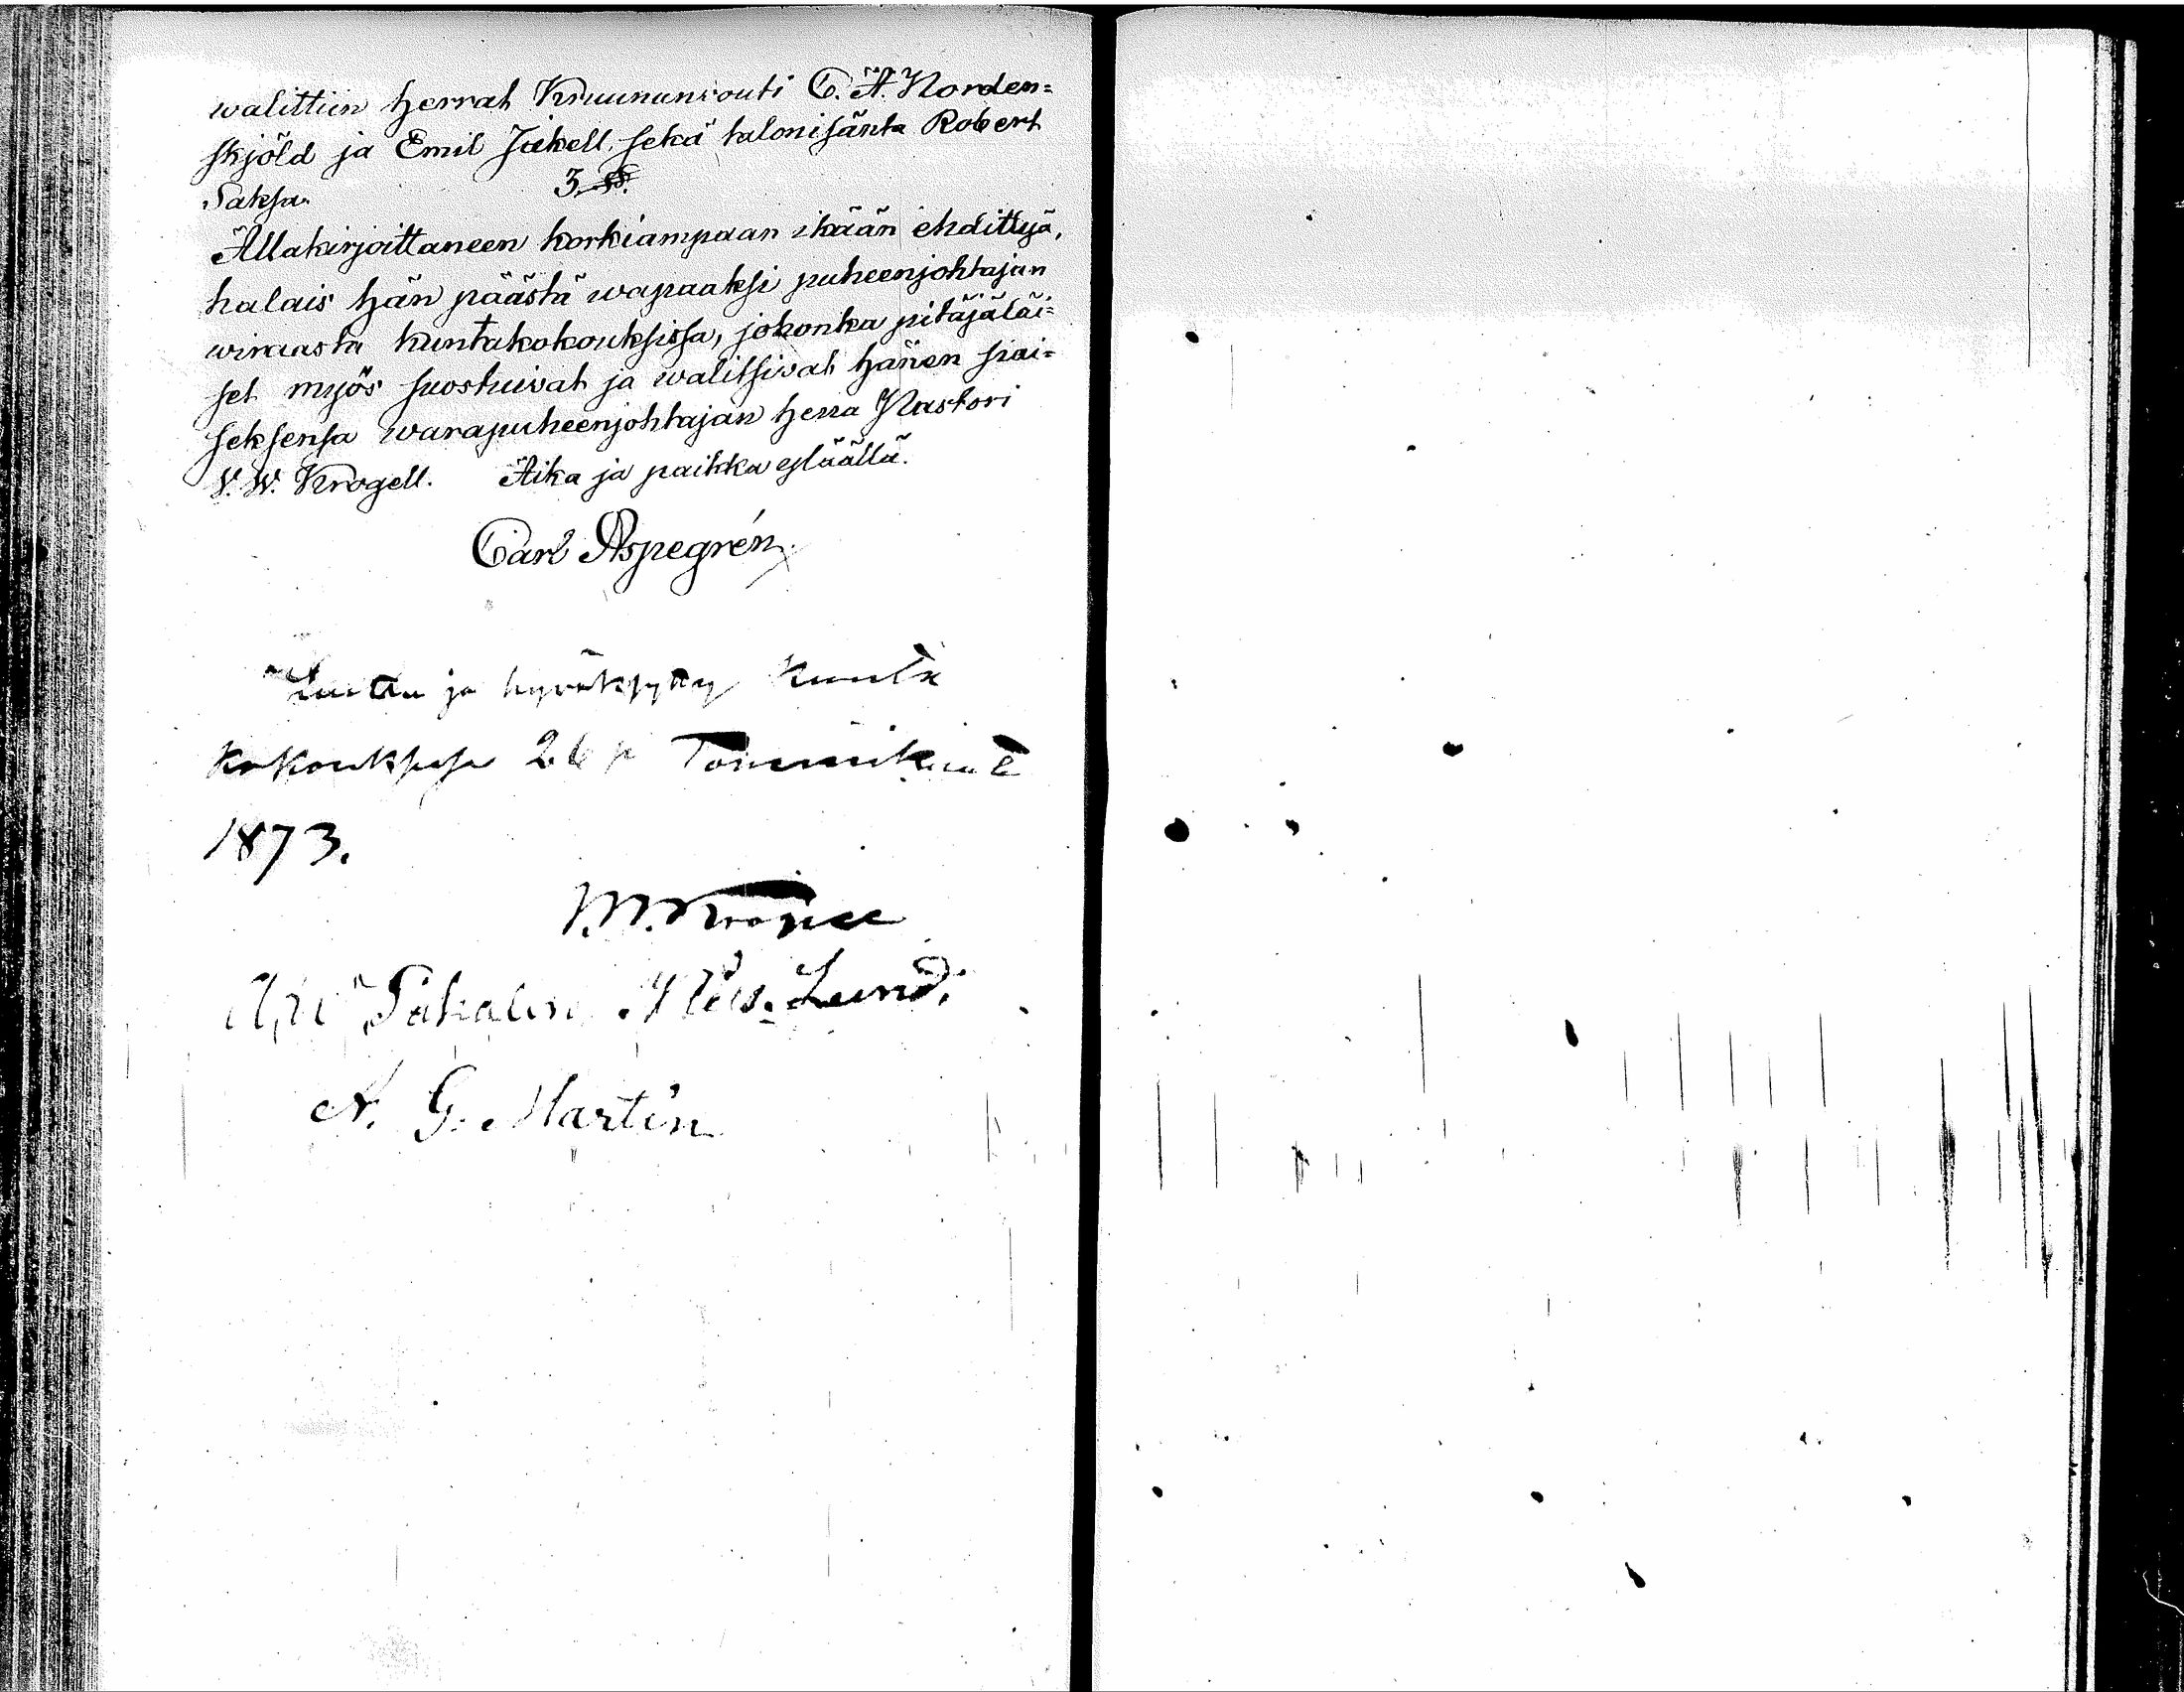 walittiin herrat Kruununwouti C. A. Norden=
skjöld ja Emil Jäkell sekä talonisänta Robert
Saksa.
3. §§.
Allakirjoittaneen korkiampaan ikään ehdittyä,
halais hän päästä wapaaksi puheenjohtajan
wirasta kuntakokouksissa, johonka pitäjäläi=
set myös suostuivat ja walitsivat hänen siai=
seksensa warapuheenjohtajan herra Pastori
V. W. Krogell. Aika ja paikka eyläällä.
Carl Aspegrén
Luettu ja hyväksytty Kunta
kokouksesa 26 p Tammikuuta
1873.
Sahalin Lund.
A. G. Martin